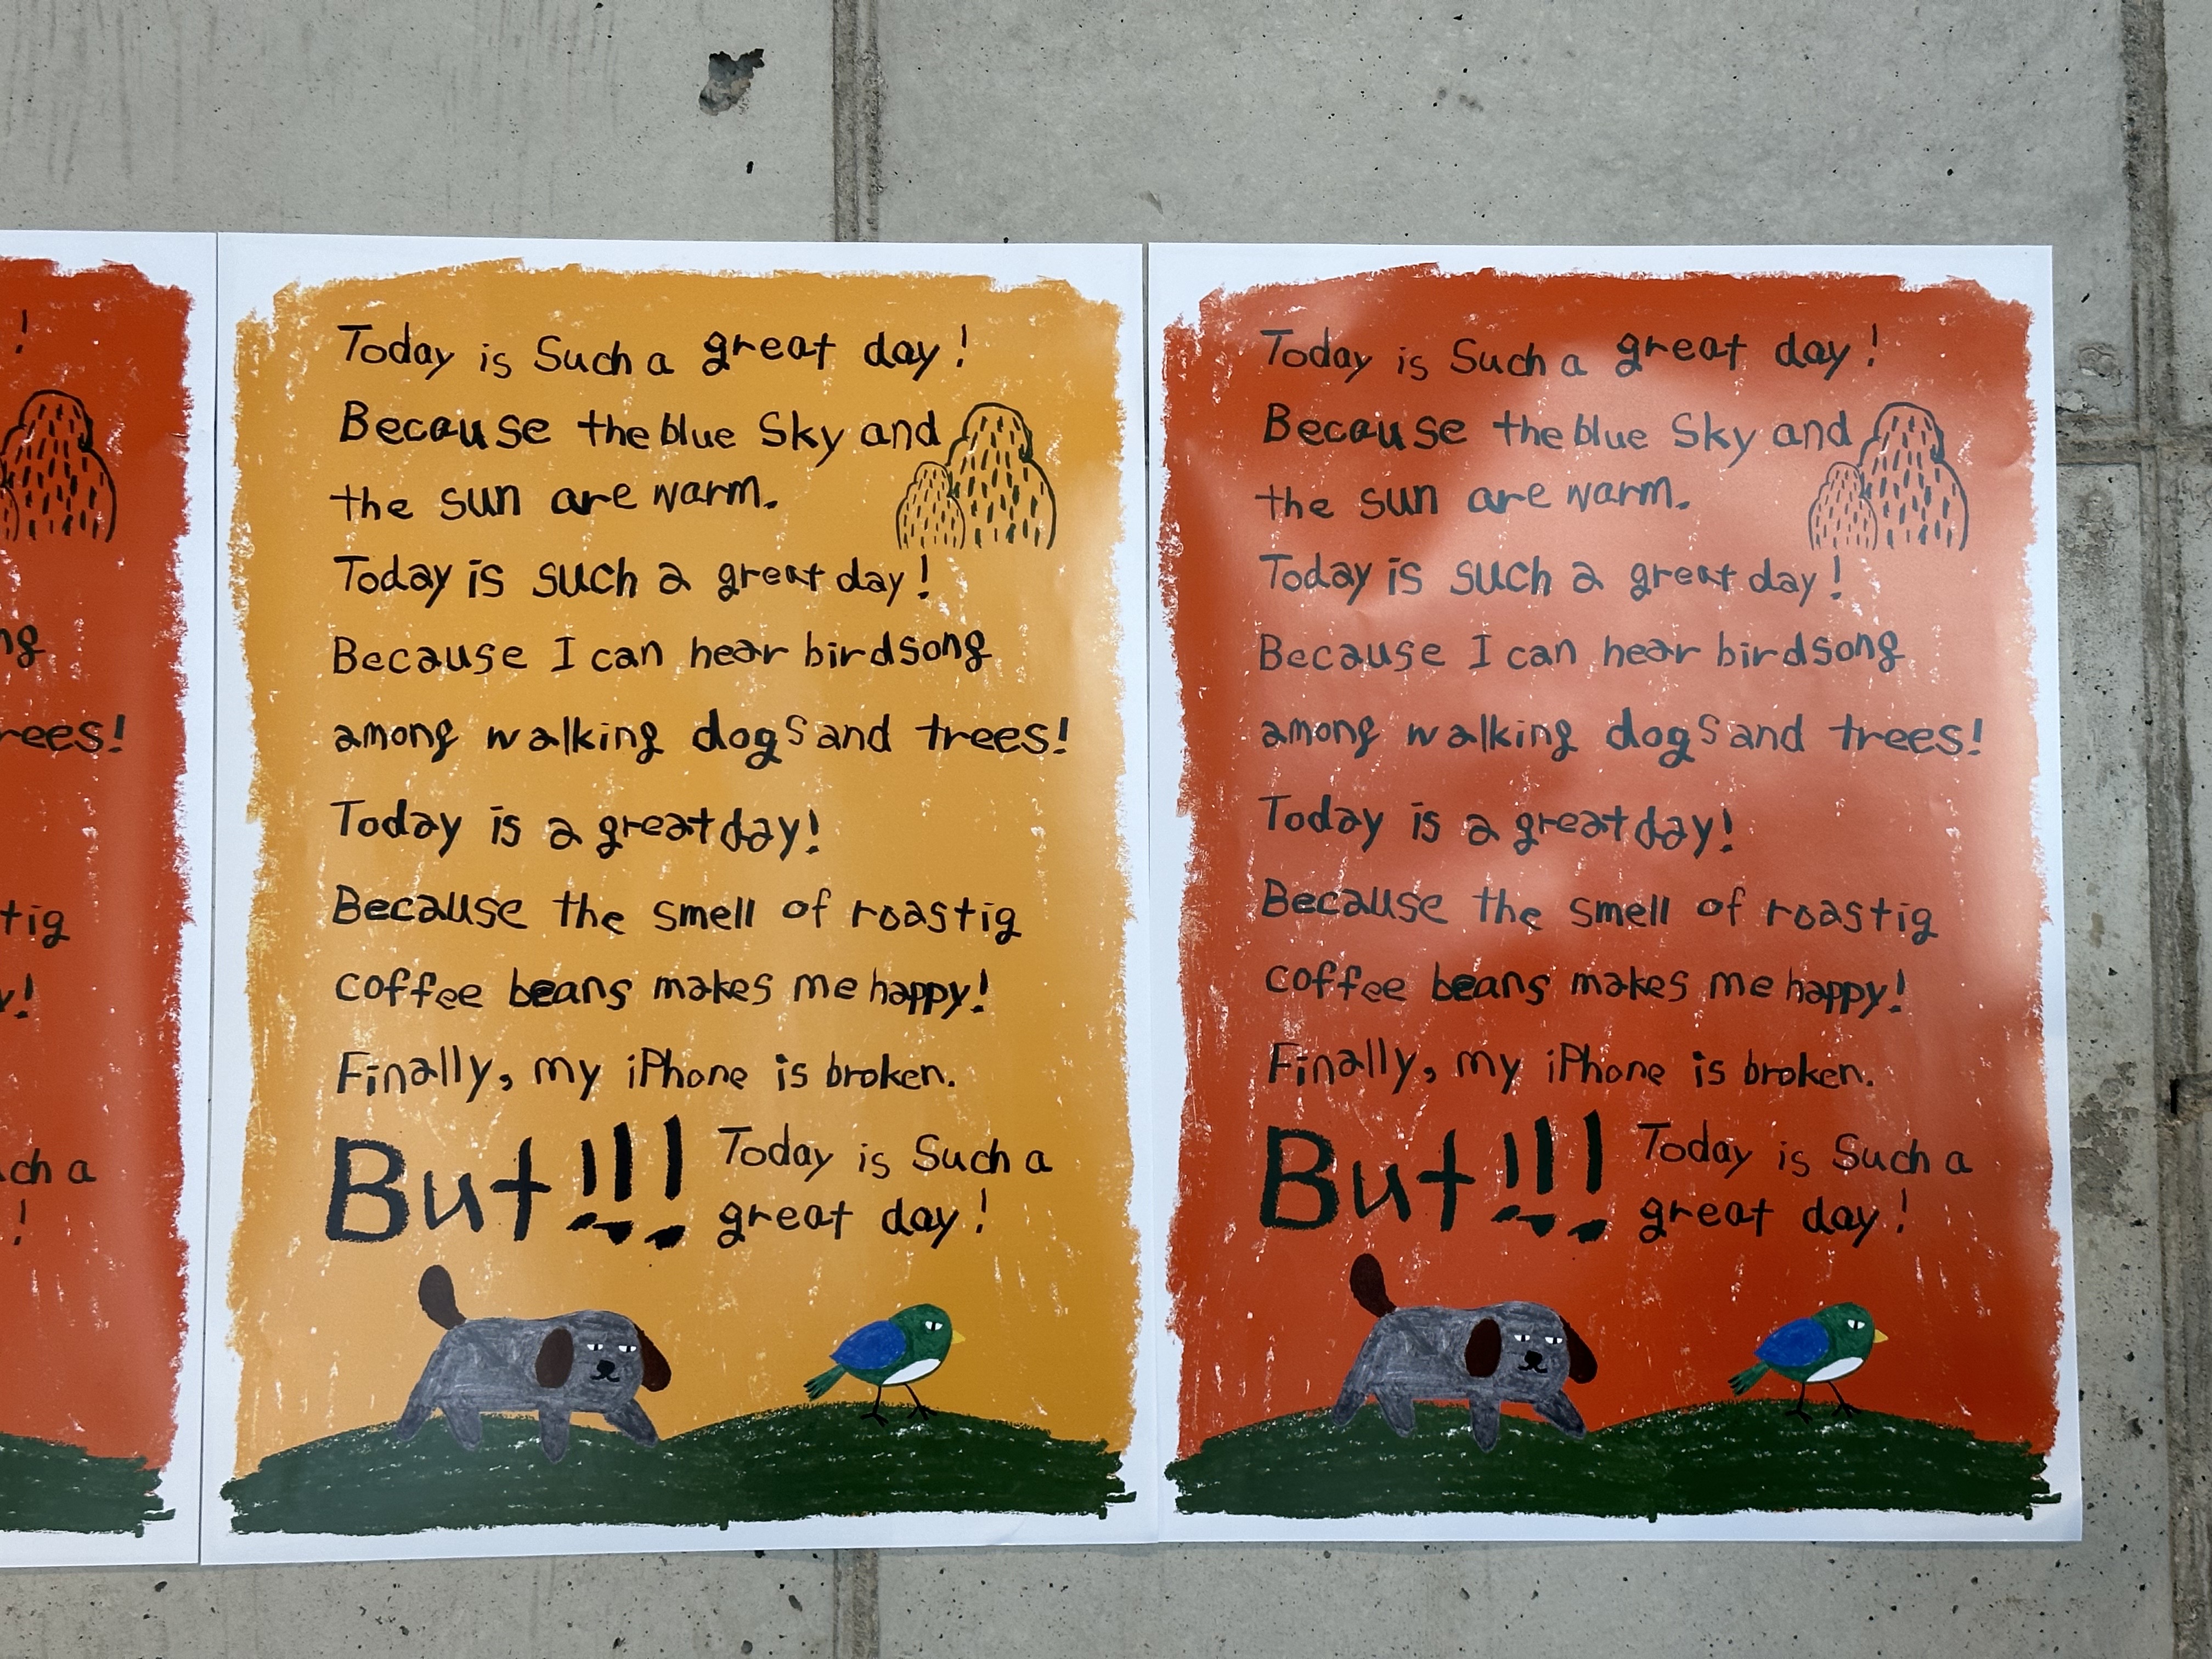 !
ng
rees!
tig
y!
ch a
!
Today is Such a great day!
Because the blue Sky and
the sun are warm.
Today is such a great day!
Because I can hear birdsong
among walking dogs and trees!
Today is a great day!
Because the smell of roastig
coffee beans makes me happy!
Finally, my iPhone is broken.
But!!! Today is Such a
great day!
Today is Such a great day!
Because the blue Sky and
the sun are warm.
Today is such a great day!
Because I can hear birdsong
among walking dogs and trees!
Today is a great day!
Because the smell of roastig
coffee beans makes me happy!
Finally, my iPhone is broken.
But!!! Today is Such a
great day!